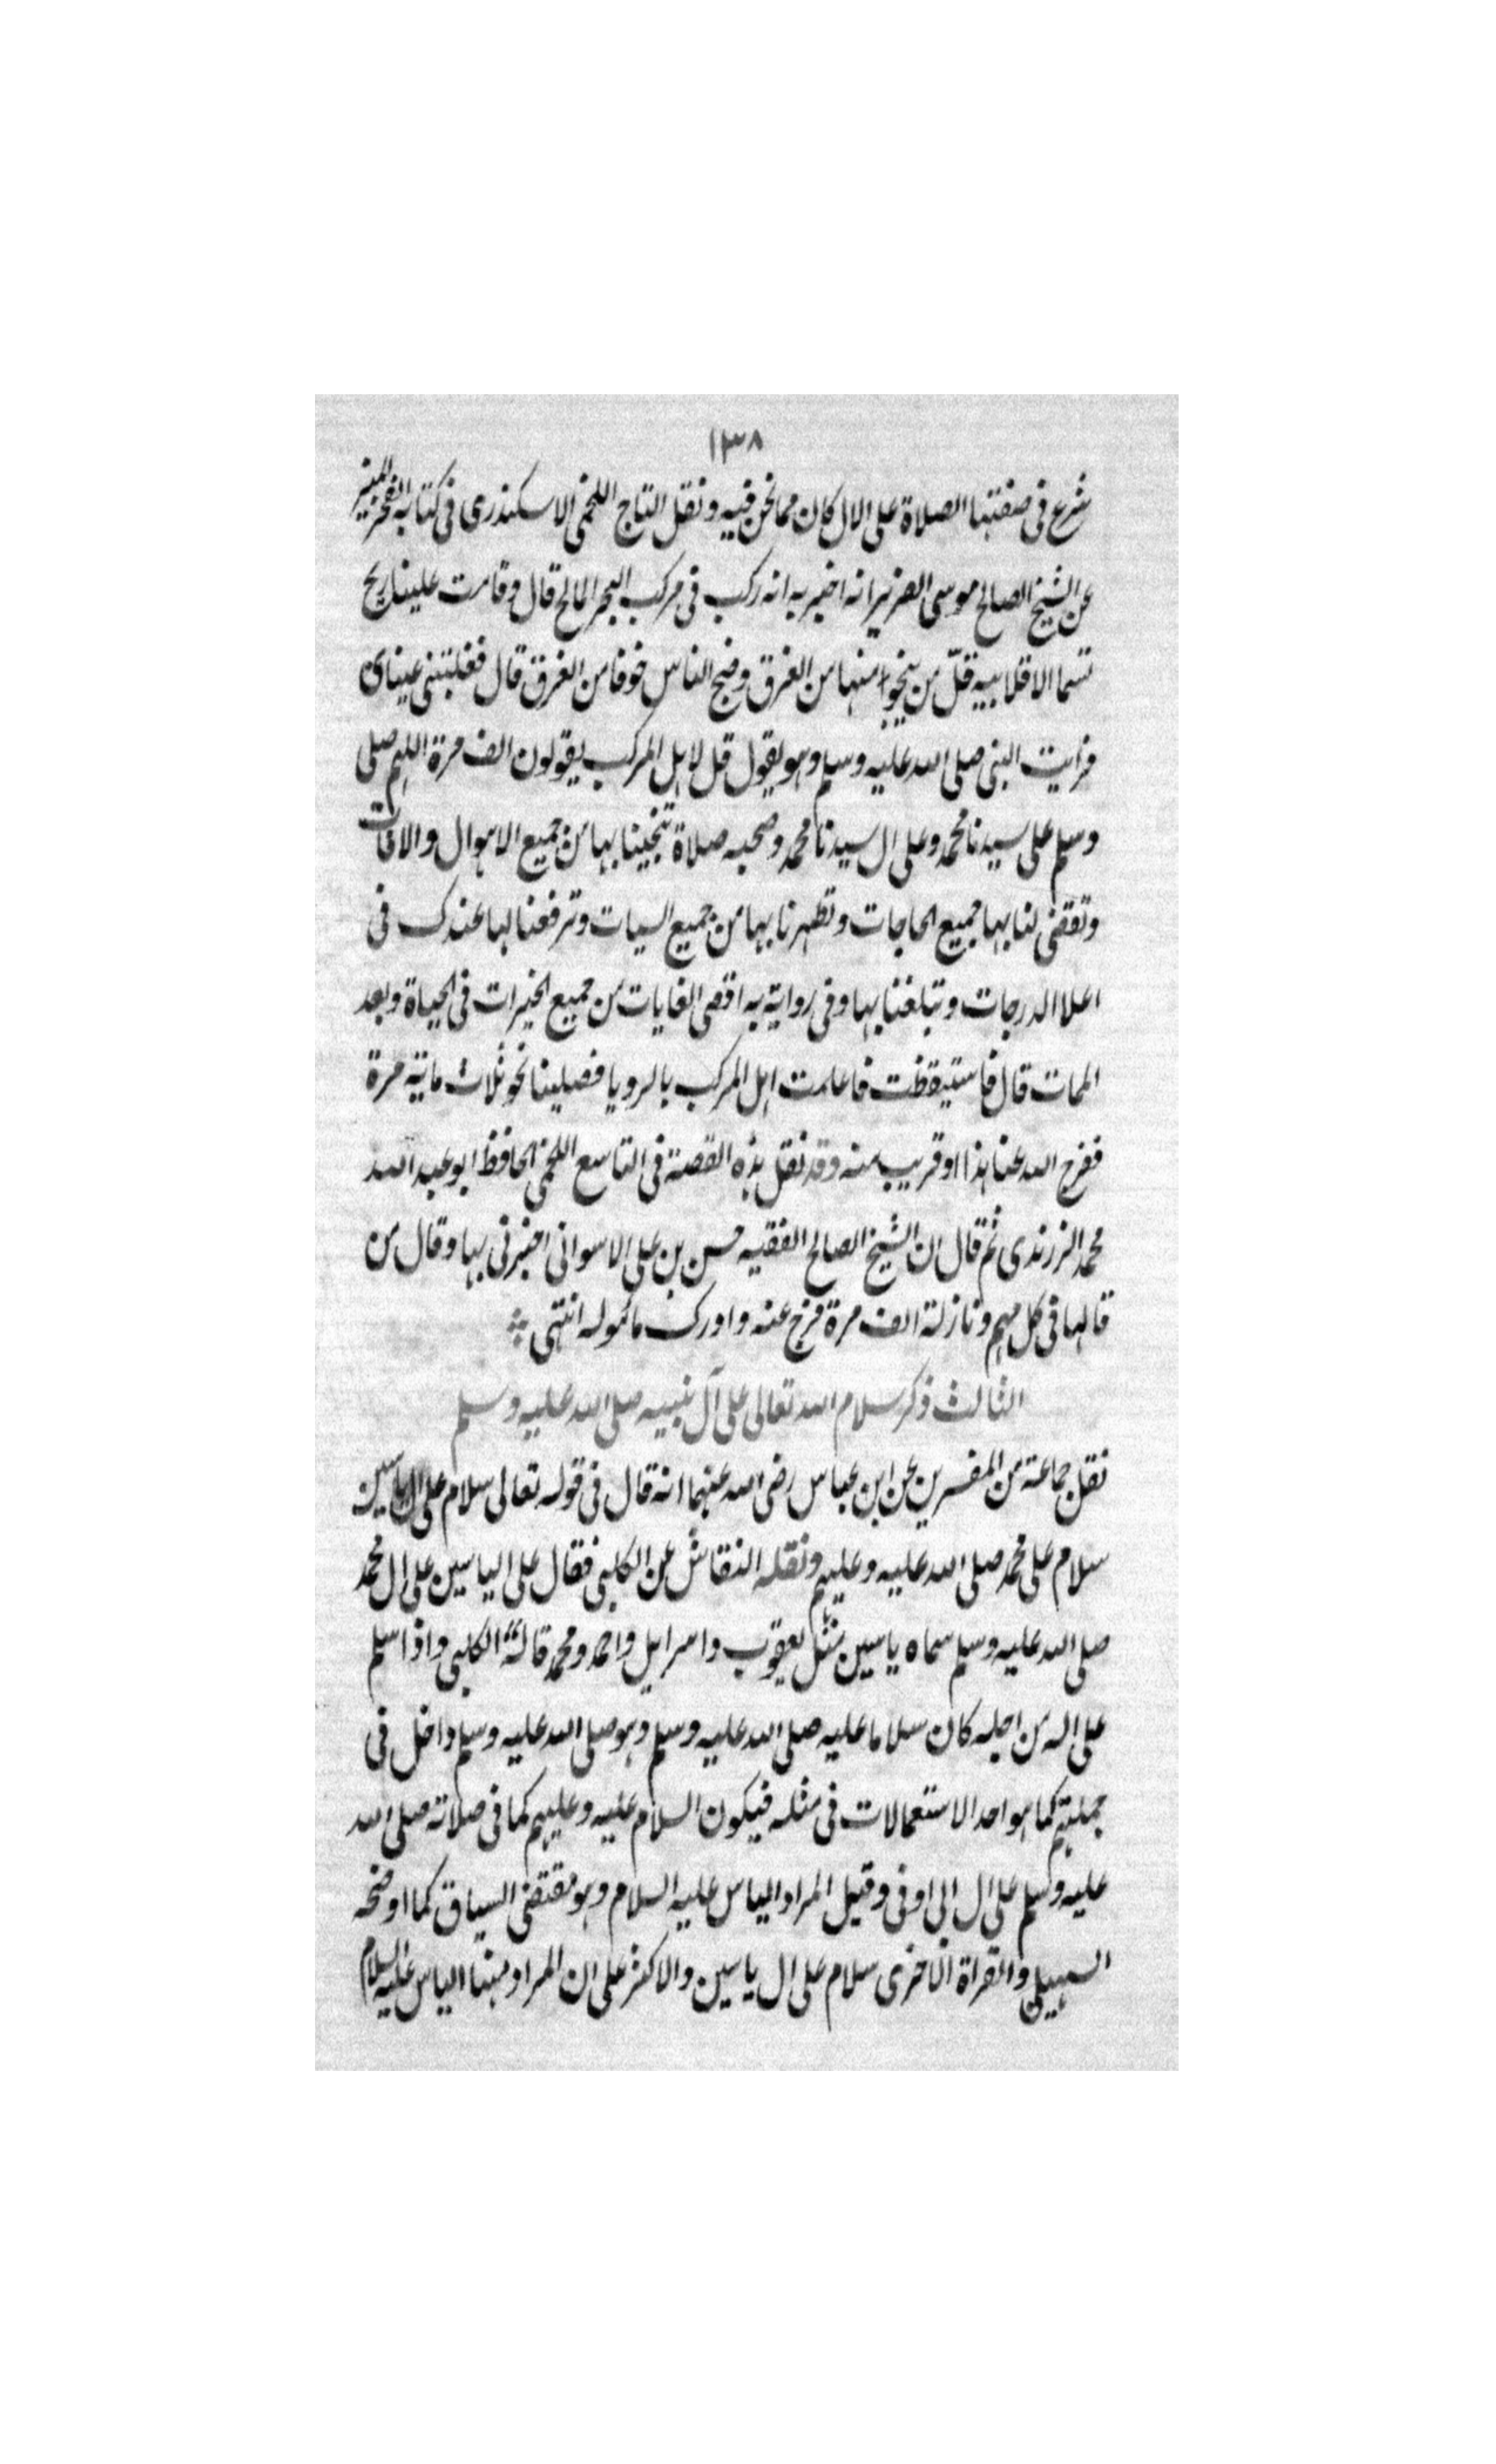 ١٣٨
شرع فى صفتها الصلاة على الال كان مما نحن فيه ونقل التاج اللخمى الاسكندرى فى كتابه الفجر المنير
عن الشيخ الصالح موسى الضرير انه اخبر به انه ركب فى مركب البحر المالح قال وقامت علينا ريح
تسما الاقلابيه قلّ من ينجوا منها من الغرق وضج الناس خوفا من الغرق قال فغلبتنى عيناى
فرايت النبى صلى الله عليه وسلم وهو يقول قل لاهل المركب يقولون الف مرة اللهم صلى
وسلم على سيدنا محمد وعلى ال سيدنا محمد وصحبه صلاة تنجينا بها من جميع الاهوال والافات
وتقضى لنا بها جميع الحاجات وتطهرنا بها من جميع السيات وترفعنا بها عندك فى
اعلا الدرجات وتبلغنا بها وفى رواية به اقصى الغايات من جميع الخيرات فى الحياة وبعد
الممات قال فاستيقظت فاعلمت اهل المركب بالرويا فصلينا نحو ثلاث ماية مرة
ففرج الله عنا هذا او قريب منه وقد نقل هذه القصة فى التاسع اللخمى الحافظ ابو عبد الله
محمد الزرندى ثم قال ان الشيخ الصالح الفقيه حسن بن على الاسوانى اخبرنى بها وقال من
قالها فى كل مهم ونازلة الف مرة فرج عنه وادرك ماموله انتهى
الثالث ذكر سلام الله تعالى على آل نبيه صلى الله عليه وسلم
نقل جماعة من المفسرين عن ابن عباس رضى الله عنهما انه قال فى قوله تعالى سلام على الياسين
سلام على محمد صلى الله عليه وعليهم ونقله النقاش عن الكلبى فقال على الياسين على ال محمد
صلى الله عليه وسلم سماه ياسين مثل يعقوب واسرايل واحمد ومحمد قاله الكلبى واذا سلم
على اله من اجله كان سلاما عليه صلى الله عليه وسلم وهو صلى الله عليه وسلم داخل فى
جملتهم كما هو احد الاستعمالات فى مثله فيكون السلام عليه وعليهم كما فى صلاته صلى الله
عليه وسلم على ال ابى اوفى وقيل المراد الياس عليه السلام وهو مقتضى السياق كما اوضحه
السهيلى والقراة الاخرى سلام على ال ياسين والاكثر على ان المراد هنا الياس عليه السلام